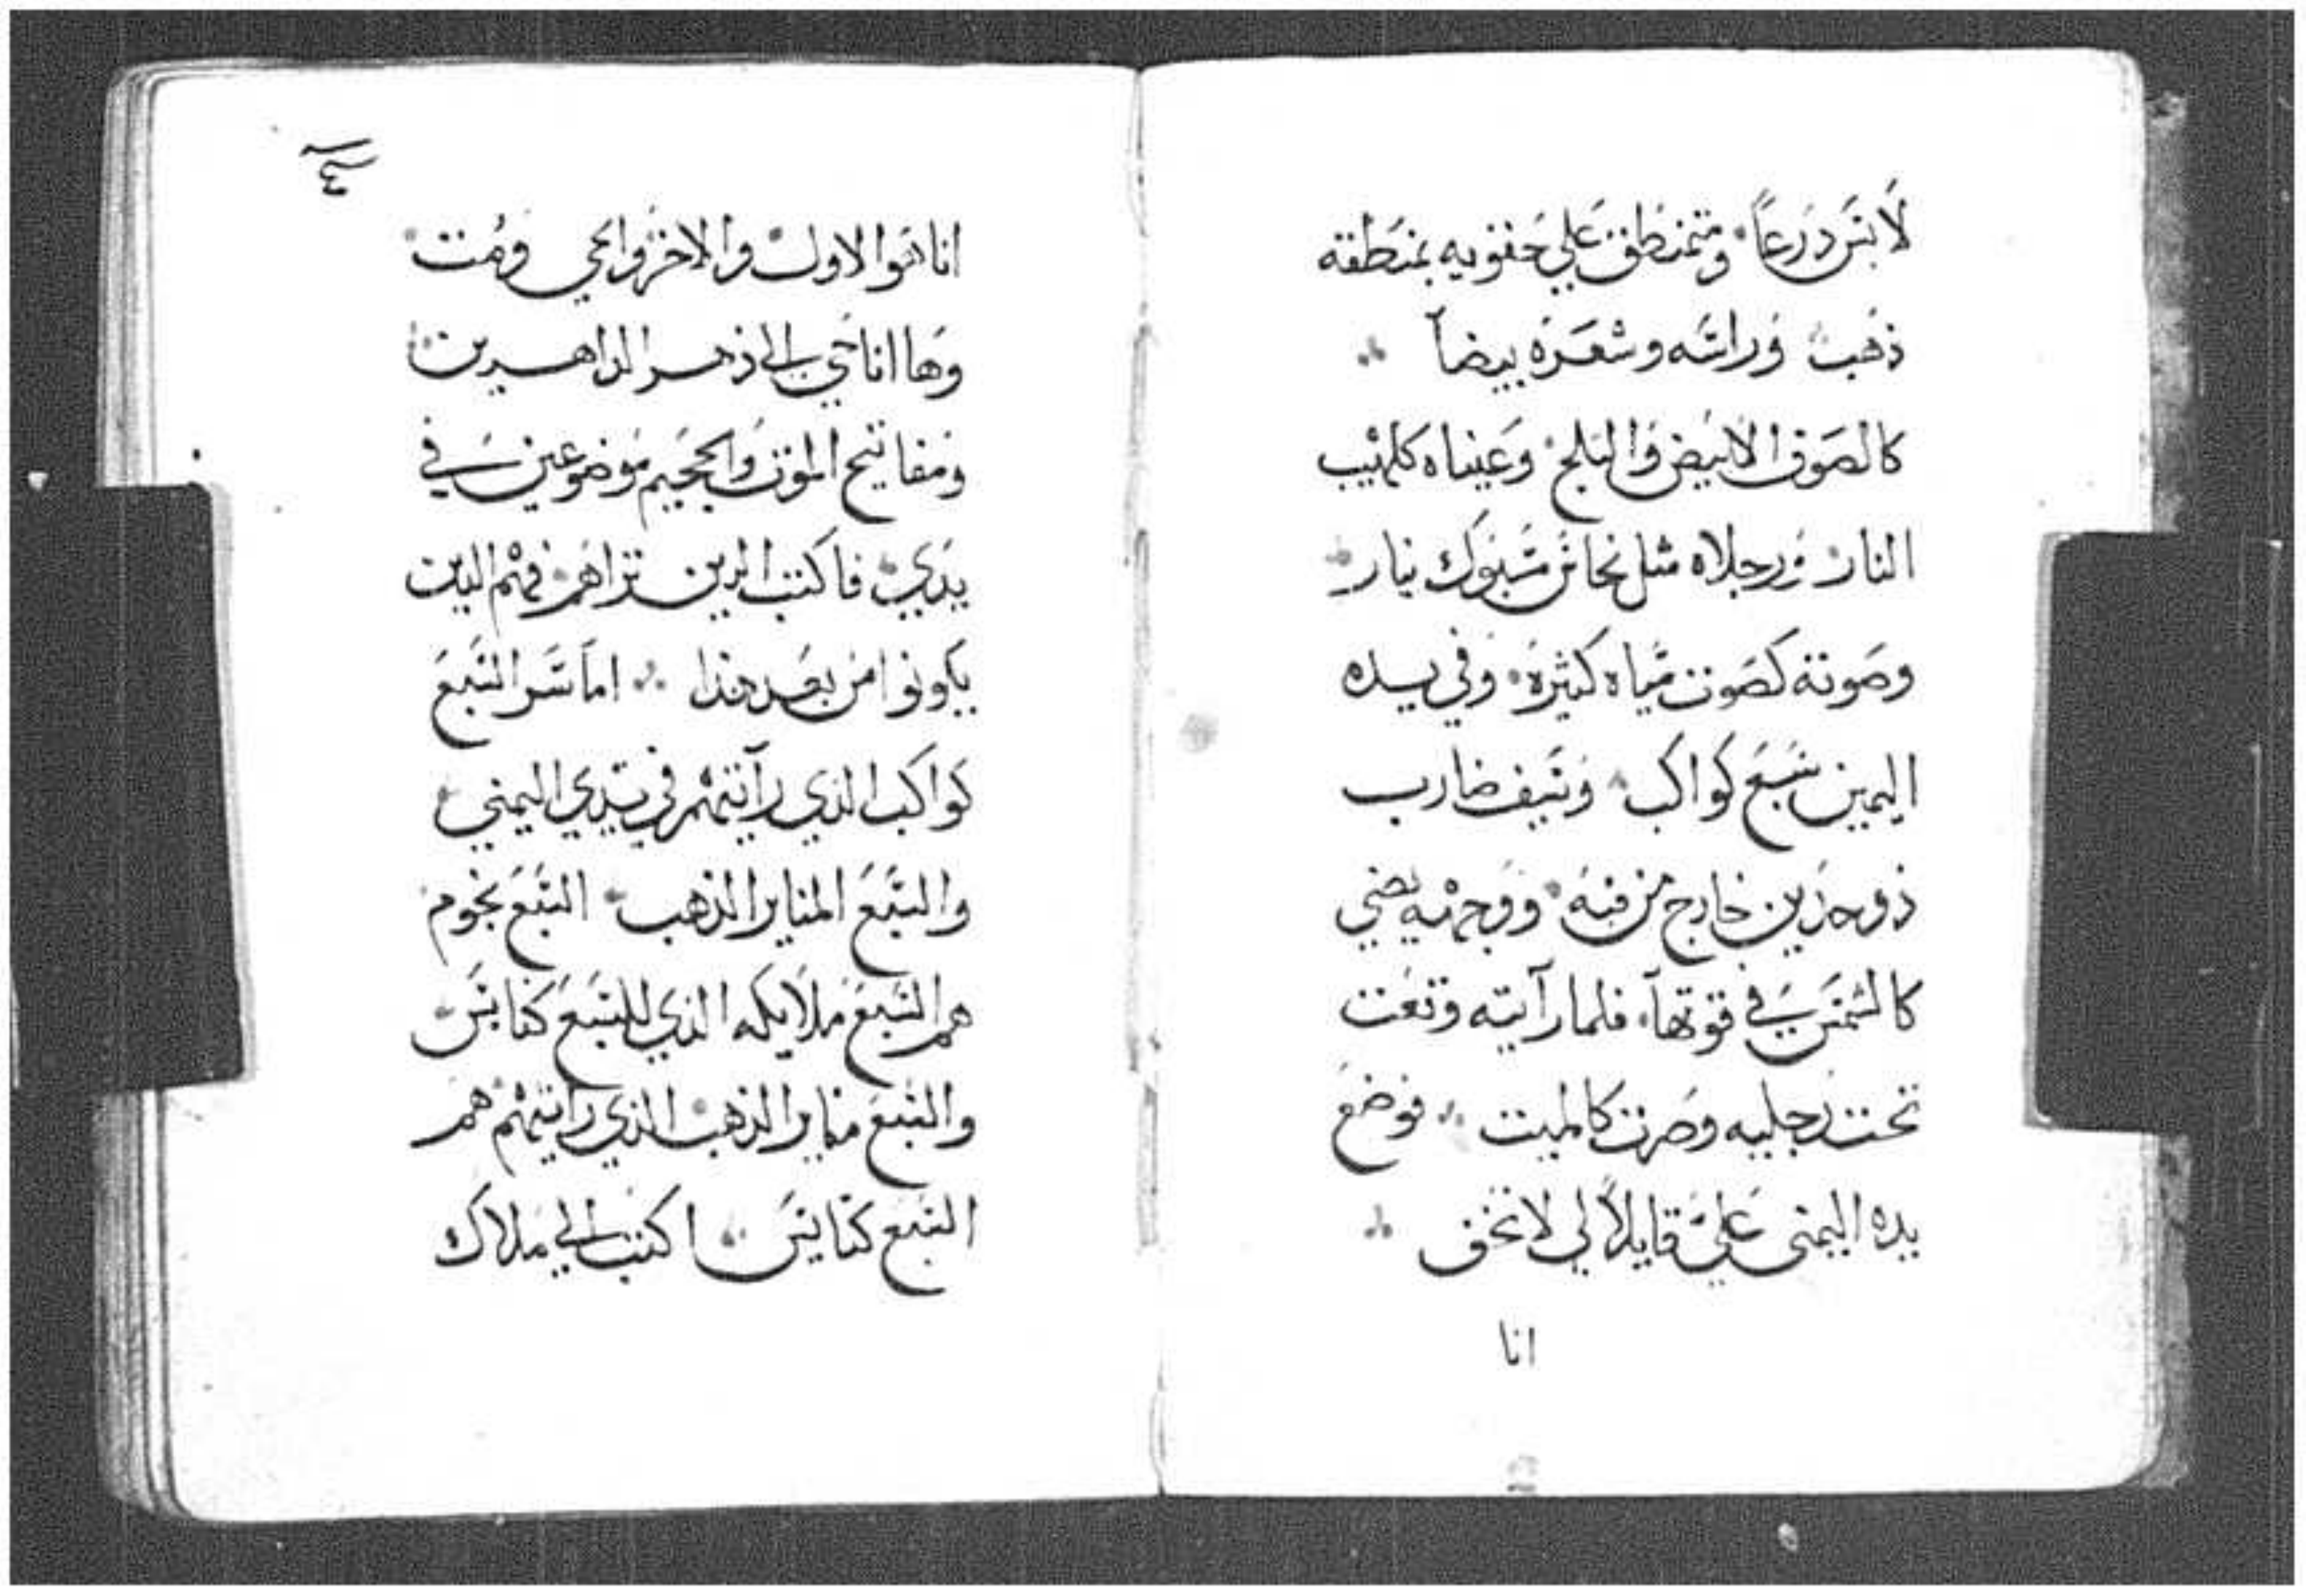 لابس درعاً ومتمنطق علي حقويه بمنطقه
ذهب وراسه وشعره بيضاً
كالصوف الابيض والثلج وعيناه كلهيب
النار ورجلاه مثل نحاس مسبوك بنار
وصوته كصوت مياه كثيره وفي يده
اليمين سبع كواكب وسيف ضارب
ذو حدين خارج من فيه ووجهه يضي
كالشمس في قوتها فلما رآيته وقعت
تحت رجليه وصرت كالميت فوضع
يده اليمنى علي قايلاً لي لا تخف
انا
انا هوا الاول والاخر والحي ومت
وها انا حي الى دهر الداهرين
ومفاتيح الموت والجحيم موضوعين في
يدي فاكتب الدين تراهم فهم الدين
يكونوا من بعد هذا اما سر السبع
كواكب الذي رآيتهم في يدي اليمني
والسبع المناير الذهب السبع نجوم
هم السبع ملايكه الذي للسبع كنايس
والسبع مناير الذهب الذي رآيتهم هم
السبع كنايس اكتب الي ملاك